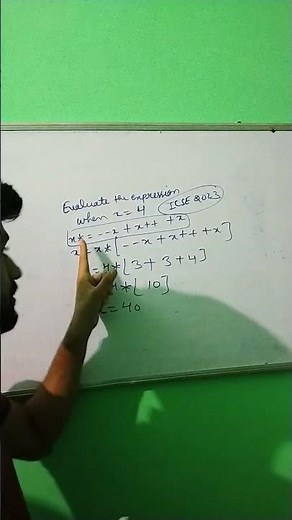 Evaluate the expression
when x = 4 ICSE 2023
x* = --x + x++ + x
x = x * [--x + x++ + x]
= 4 * [3 + 3 + 4]
* [10]
= 40